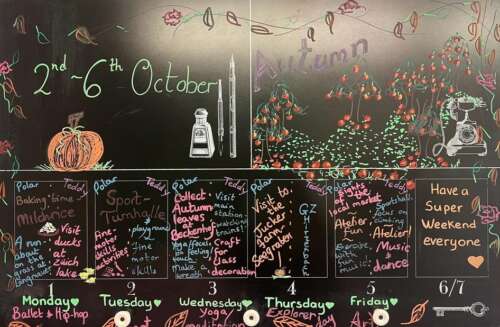 2nd-6th October
Autumn
Polar Teddy
Baking time
Mildrice
Visit
ducks
at
Zürich
lake
A run
about
on the
grass at
Polar Teddy
Sport-
Turnhalle
playground
Fine
motor
skills
fine
motor
skills
Polar Teddy
Collect
Autumn
leaves
at
Visit
main
station-
watching
trains!
Yoga/focus
on feeling/
make a
Craft
for
glass
decoration
Polar Teddy
Visit to
Jucker
Farm
Seegräben
GZ
Polar Teddy
sights
of the
local market
Atelier
Fun
Exercise
with
fun
music!
Sporthalle
focus on
climbing
Atelier!
Music
&
dance
Have a
Super
Weekend
everyone
1
2
3
4
5
6/7
Monday
Tuesday
Wednesday
Thursday
Friday
Ballet & Hip-hop
Yoga/
meditation
Explorer